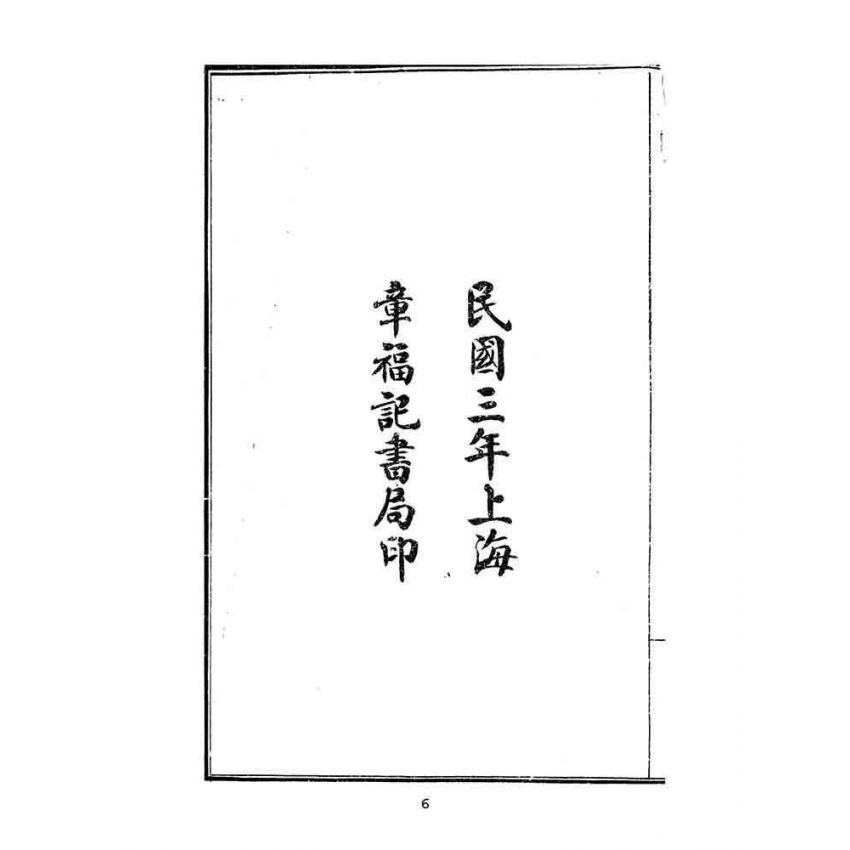 民國三年上海
章福記書局印
6